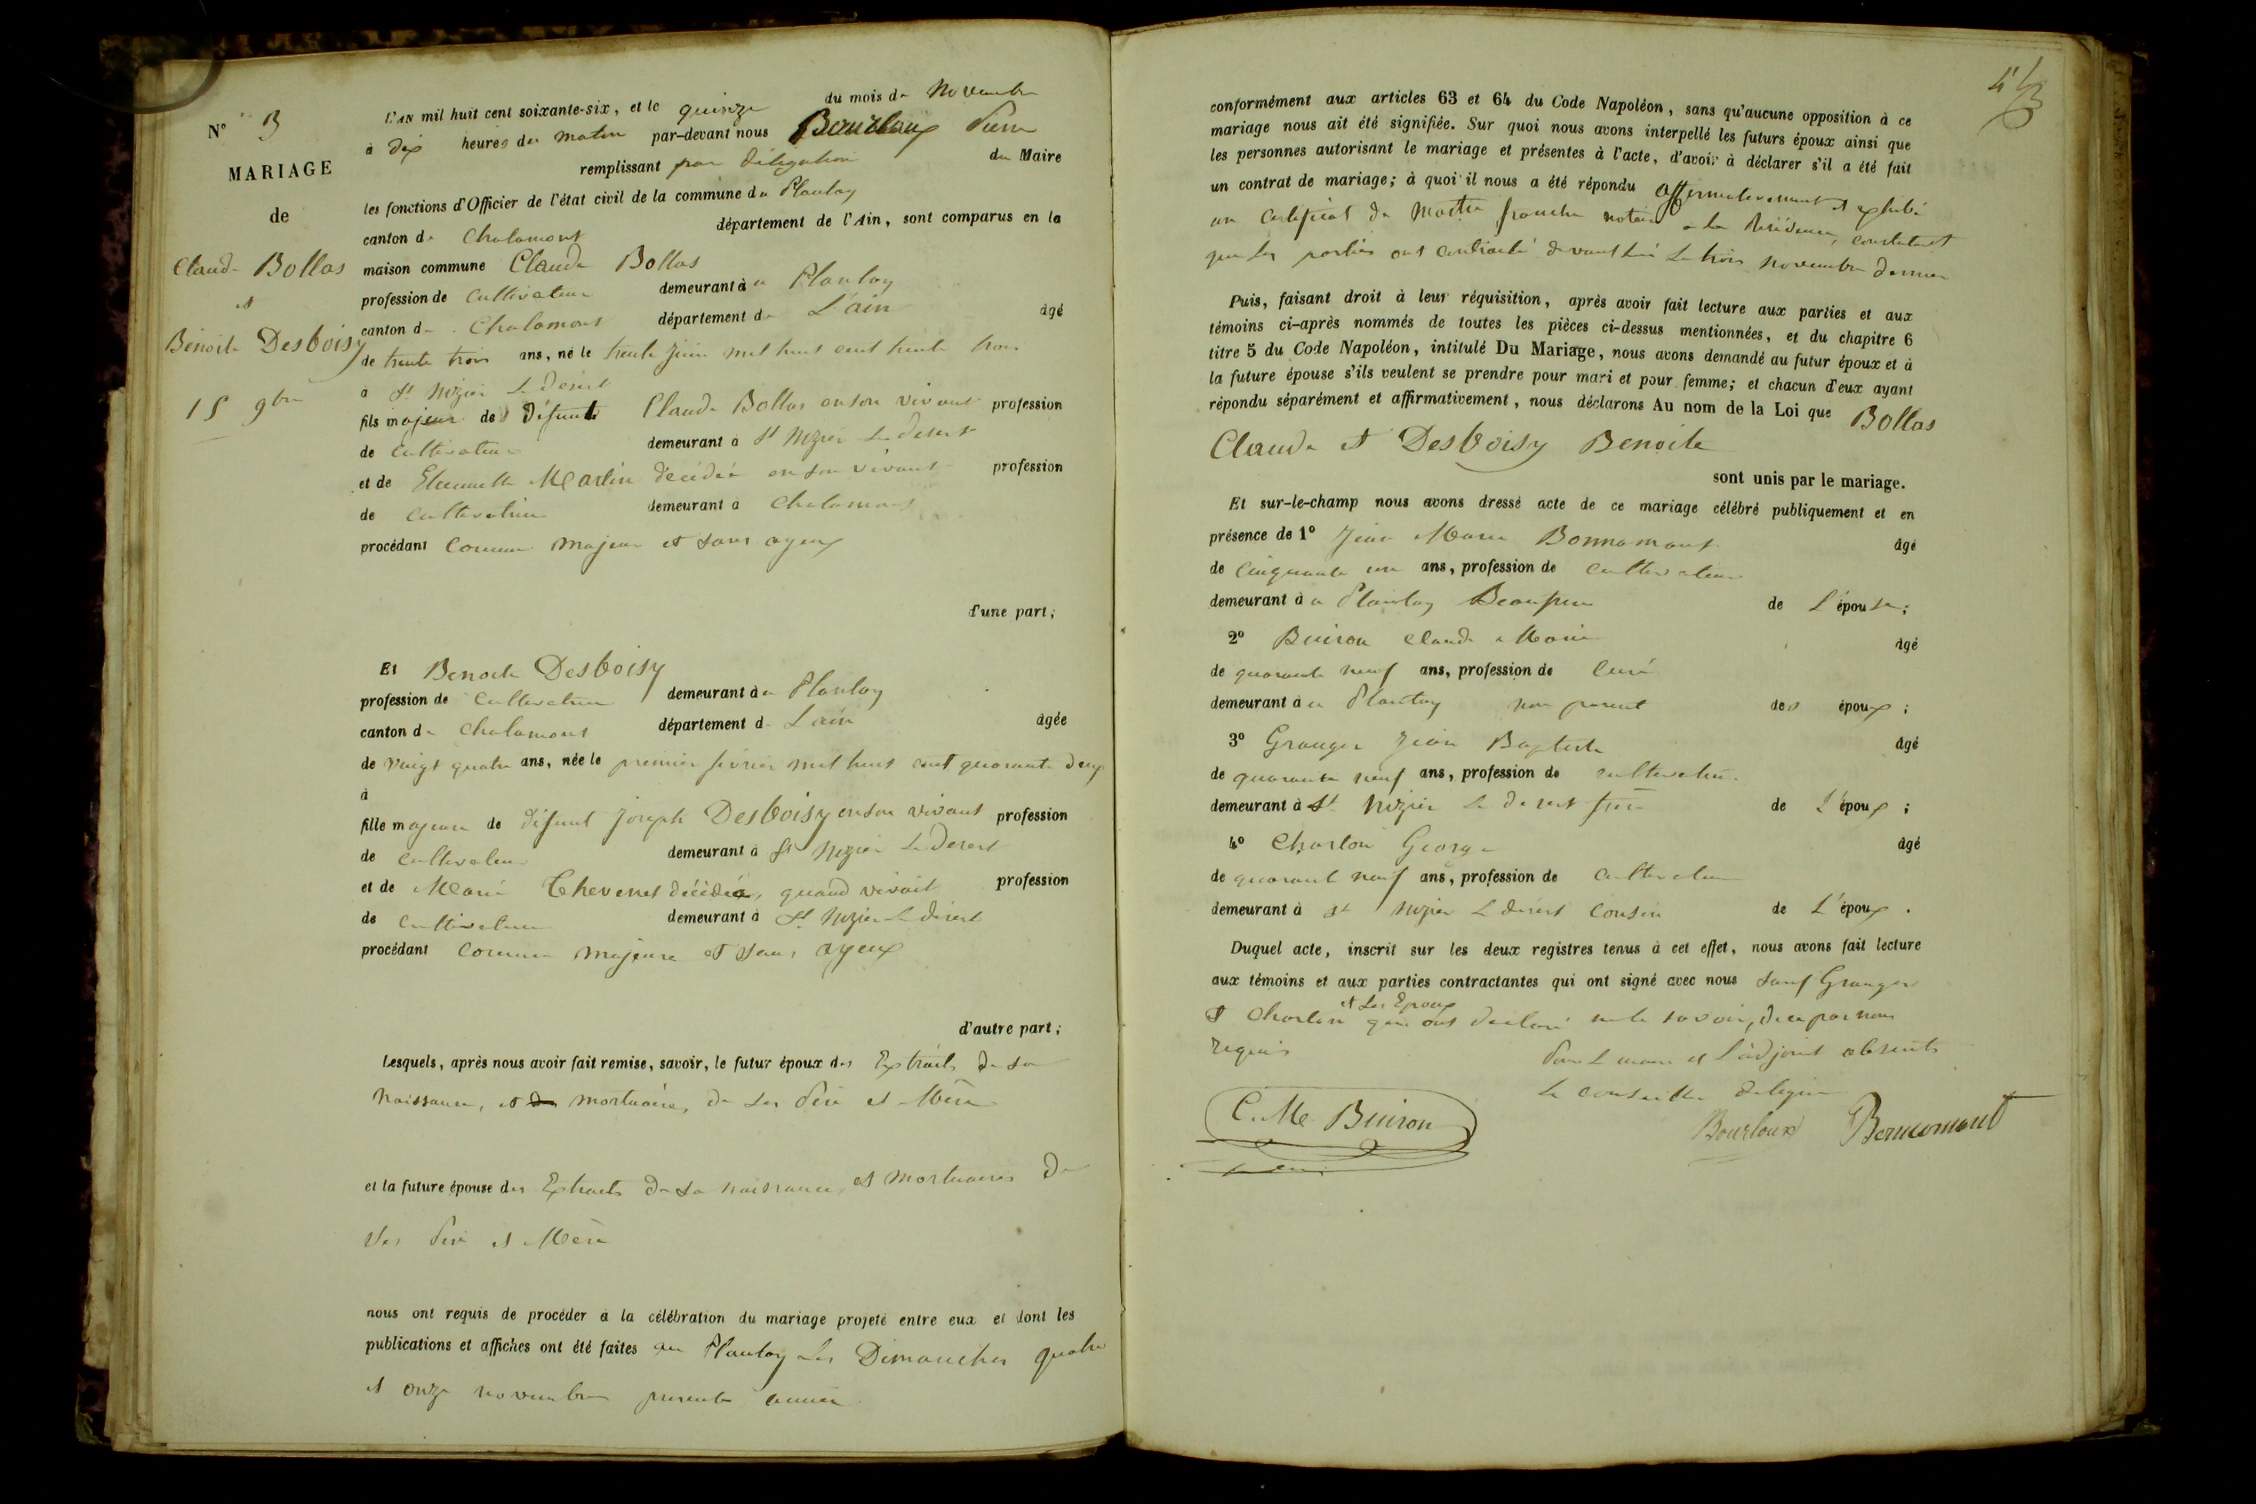 N° 13
MARIAGE
de
Claude Bollas
et
Benoite Desboisy
15 9bre
L'AN mil huit cent soixante-six, et le quinze du mois de Novembre
à dix heures du matin par-devant nous Bourloux Pierre
remplissant par délégation du Maire
les fonctions d'Officier de l'état civil de la commune du Plantay
canton de Chalamont département de l'Ain, sont comparus en la
maison commune Claude Bollas
profession de cultivateur demeurant à u Plantay
canton de Chalamont département de L'ain âgé
de trente trois ans, né le trente Juin mil huit cent trente trois
à St Nizier Le Désert
fils majeur de Défunt Claude Bollas en son vivant profession
de cultivateur demeurant à St Nizier Le desert
et de Etiennette Martin décédée en son vivant profession
de cultivatrice demeurant à Chalamont
procédant comme majeur et sans ayeux
d'une part;
Et Benoite Desboisy
profession de cultivatrice demeurant à u Plantay
canton de Chalamont département de L'ain âgée
de vingt quatre ans, née le premier février mil huit cent quarante deux
à
fille majeure de défunt Joseph Desboisy en son vivant profession
de cultivateur demeurant à St Nizier Le Desert
et de Marie Thevenet décédée, quand vivait profession
de cultivatrice demeurant à St Nizier Le désert
procédant comme majeure et sans ayeux
d'autre part;
Lesquels, après nous avoir fait remise, savoir, le futur époux des Extraits de sa
naissance, et mortuaires de ses Père et Mère
et la future épouse des Extraits de sa naissance, et mortuaires de
ses Père et Mère
nous ont requis de procéder à la célébration du mariage projeté entre eux et dont les
publications et affiches ont été faites au Plantay les Dimanches quatre
et onze novembre présente année
43
conformément aux articles 63 et 64 du Code Napoléon, sans qu'aucune opposition à ce
mariage nous ait été signifiée. Sur quoi nous avons interpellé les futurs époux ainsi que
les personnes autorisant le mariage et présentes à l'acte, d'avoir à déclarer s'il a été fait
un contrat de mariage; à quoi il nous a été répondu affirmativement et exhibé
un certificat de Maitre franche notaire a la Résidence, constatant
que les parties ont contracté devant lui le trois novembre dernier
Puis, faisant droit à leur réquisition, après avoir fait lecture aux parties et aux
témoins ci-après nommés de toutes les pièces ci-dessus mentionnées, et du chapitre 6
titre 5 du Code Napoléon, intitulé Du Mariage, nous avons demandé au futur époux et à
la future épouse s'ils veulent se prendre pour mari et pour femme; et chacun d'eux ayant
répondu séparément et affirmativement, nous déclarons Au nom de la Loi que Bollas
Claude et Desboisy Benoite
sont unis par le mariage.
Et sur-le-champ nous avons dressé acte de ce mariage célébré publiquement et en
présence de 1° Jean Marie Bonnamont âgé
de cinquante un ans, profession de cultivateur
demeurant à u Plantay Beaupère de L'épouse;
2° Buiron Claude Marie âgé
de quarante neuf ans, profession de Curé
demeurant à u Plantay non parent des époux;
3° Granger Jean Baptiste âgé
de quarante neuf ans, profession de cultivateur
demeurant à St Nizier Le desert frère de L'époux;
4° Charlon George âgé
de quarante neuf ans, profession de cultivateur
demeurant à St Nizier Le désert Cousin de L'époux.
Duquel acte, inscrit sur les deux registres tenus à cet effet, nous avons fait lecture
aux témoins et aux parties contractantes qui ont signé avec nous sauf Granger
et Charlon et les Epoux qui ont déclaré ne le savoir, de ce par nous
requis
Pour le maire et l'adjoint absents
Le conseiller délégué
C. Me Buiron Bourloux Bonnamont